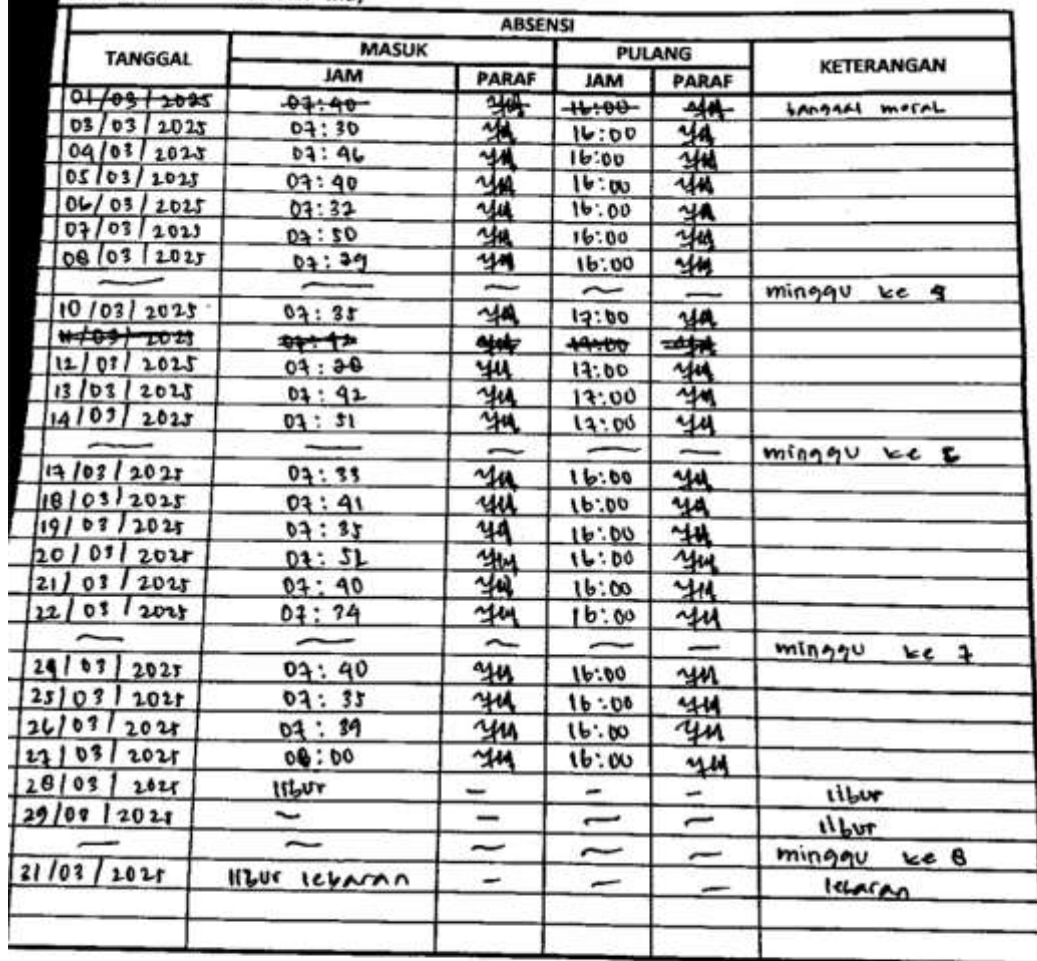 ABSENSI
TANGGAL MASUK PULANG KETERANGAN
JAM PARAF JAM PARAF
01/03/2025 07:40 16:00 tanggal merah
03/03/2025 07:30 16:00
04/03/2025 07:46 16:00
05/03/2025 07:40 16:00
06/03/2025 07:32 16:00
07/03/2025 07:50 16:00
08/03/2025 07:29 16:00
— — — — — minggu ke
10/03/2025 07:35 17:00
11/03/2025 07:42 17:00
12/03/2025 07:38 17:00
13/03/2025 07:42 17:00
14/03/2025 07:51 17:00
— — — — — minggu ke
17/03/2025 07:33 16:00
18/03/2025 07:41 16:00
19/03/2025 07:35 16:00
20/03/2025 07:52 16:00
21/03/2025 07:40 16:00
22/03/2025 07:34 16:00
— — — — — minggu ke 7
24/03/2025 07:40 16:00
25/03/2025 07:35 16:00
26/03/2025 07:39 16:00
27/03/2025 08:00 16:00
28/03/2025 libur — — — libur
29/03/2025 — — — — libur
— — — — — minggu ke 8
31/03/2025 libur lebaran — — — lebaran